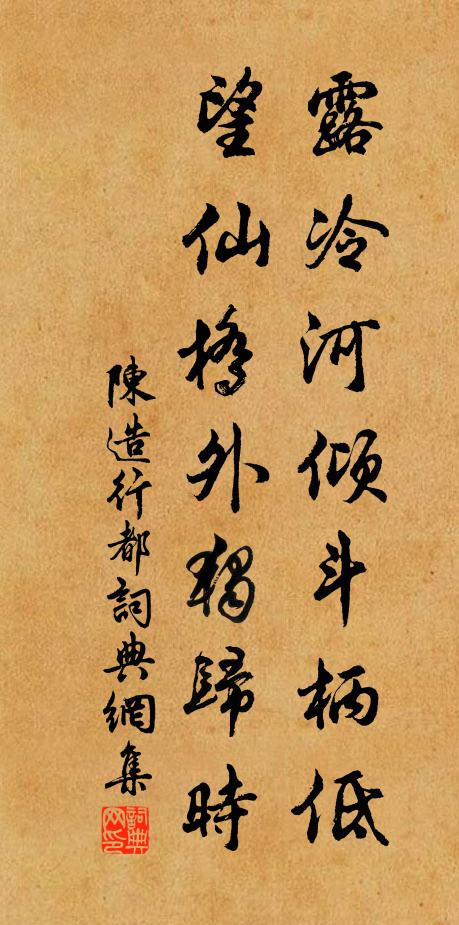 露冷河傾斗柄低
望仙橋外獨歸時
陳造行都詞典網集
詞典网印